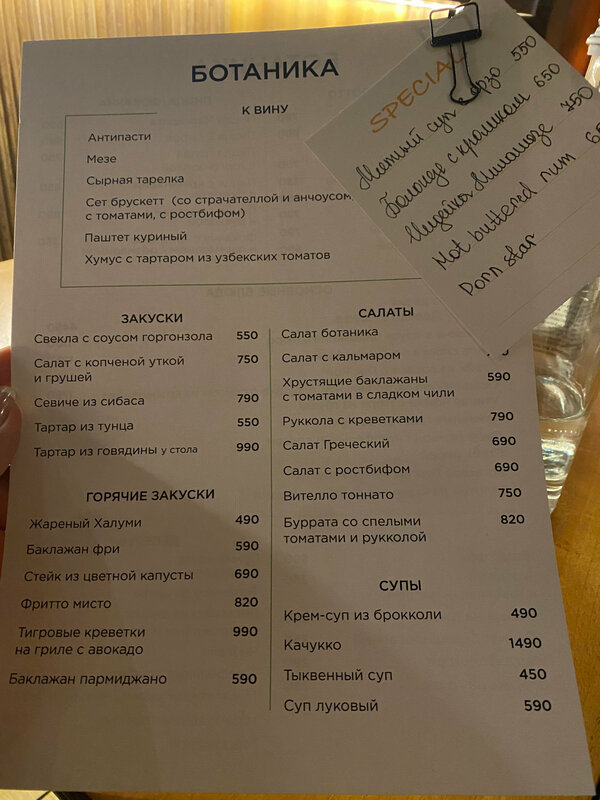 БОТАНИКА
К ВИНУ
Антипасти
Мезе
Сырная тарелка
Сет брускетт (со страчателлой и анчоусом,
с томатами, с ростбифом)
Паштет куриный
Хумус с тартаром из узбекских томатов
SPECIAL
Мятный суп орзо 550
с крошком 650
750
Hot buttered rum
Porn star
ЗАКУСКИ
Свекла с соусом горгонзола 550
Салат с копченой уткой 750
и грушей
Севиче из сибаса 790
Тартар из тунца 550
Тартар из говядины у стола 990
ГОРЯЧИЕ ЗАКУСКИ
Жареный Халуми 490
Баклажан фри 590
Стейк из цветной капусты 690
Фритто мисто 820
Тигровые креветки 990
на гриле с авокадо
Баклажан пармиджано 590
САЛАТЫ
Салат ботаника
Салат с кальмаром
Хрустящие баклажаны 590
с томатами в сладком чили
Руккола с креветками 790
Салат Греческий 690
Салат с ростбифом 690
Вителло тоннато 750
Буррата со спелыми 820
томатами и рукколой
СУПЫ
Крем-суп из брокколи 490
Качукко 1490
Тыквенный суп 450
Суп луковый 590